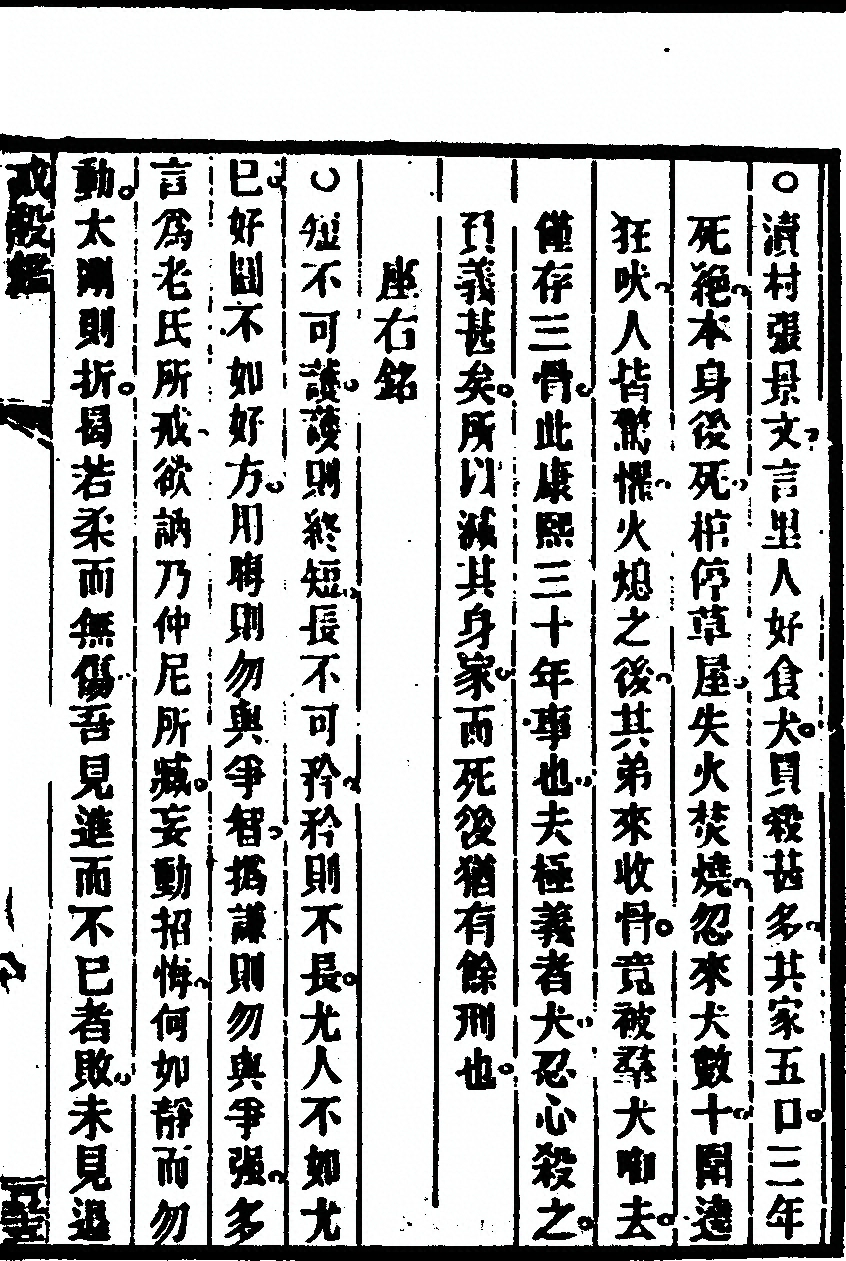 ○瀆村張景文言里人好食犬買殺甚多其家五口三年
死絶本身後死棺停草屋失火焚燒忽來犬數十圍遶
狂吠人皆驚懼火熄之後其弟來收骨竟被羣犬啣去
僅存三骨此康熙三十年事也夫極義者犬忍心殺之
負義甚矣所以滅其身家而死後猶有餘刑也
座右銘
○短不可護護則終短長不可矜矜則不長尤人不如尤
已好圓不如好方用晦則勿與爭智撝謙則勿與爭强多
言爲老氏所戒欲訥乃仲尼所臧妄動招悔何如靜而勿
動太剛則折曷若柔而無傷吾見進而不已者敗未見退
戒殺鑑